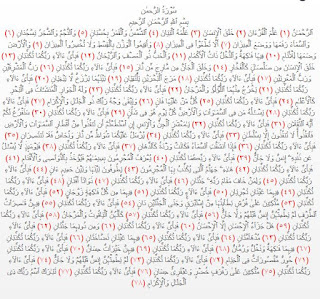 سُورَةُ الرَّحْمَٰن
بِسْمِ اللَّهِ الرَّحْمَٰنِ الرَّحِيمِ
الرَّحْمَٰنُ (١) عَلَّمَ الْقُرْآنَ (٢) خَلَقَ الْإِنسَانَ (٣) عَلَّمَهُ الْبَيَانَ (٤) الشَّمْسُ وَالْقَمَرُ بِحُسْبَانٍ (٥) وَالنَّجْمُ وَالشَّجَرُ يَسْجُدَانِ (٦)
وَالسَّمَاءَ رَفَعَهَا وَوَضَعَ الْمِيزَانَ (٧) أَلَّا تَطْغَوْا فِي الْمِيزَانِ (٨) وَأَقِيمُوا الْوَزْنَ بِالْقِسْطِ وَلَا تُخْسِرُوا الْمِيزَانَ (٩) وَالْأَرْضَ
وَضَعَهَا لِلْأَنَامِ (١٠) فِيهَا فَاكِهَةٌ وَالنَّخْلُ ذَاتُ الْأَكْمَامِ (١١) وَالْحَبُّ ذُو الْعَصْفِ وَالرَّيْحَانُ (١٢) فَبِأَيِّ آلَاءِ رَبِّكُمَا تُكَذِّبَانِ (١٣)
خَلَقَ الْإِنسَانَ مِن صَلْصَالٍ كَالْفَخَّارِ (١٤) وَخَلَقَ الْجَانَّ مِن مَّارِجٍ مِّن نَّارٍ (١٥) فَبِأَيِّ آلَاءِ رَبِّكُمَا تُكَذِّبَانِ (١٦) رَبُّ الْمَشْرِقَيْنِ
وَرَبُّ الْمَغْرِبَيْنِ (١٧) فَبِأَيِّ آلَاءِ رَبِّكُمَا تُكَذِّبَانِ (١٨) مَرَجَ الْبَحْرَيْنِ يَلْتَقِيَانِ (١٩) بَيْنَهُمَا بَرْزَخٌ لَّا يَبْغِيَانِ (٢٠) فَبِأَيِّ آلَاءِ رَبِّكُمَا
تُكَذِّبَانِ (٢١) يَخْرُجُ مِنْهُمَا اللُّؤْلُؤُ وَالْمَرْجَانُ (٢٢) فَبِأَيِّ آلَاءِ رَبِّكُمَا تُكَذِّبَانِ (٢٣) وَلَهُ الْجَوَارِ الْمُنشَآتُ فِي الْبَحْرِ
كَالْأَعْلَامِ (٢٤) فَبِأَيِّ آلَاءِ رَبِّكُمَا تُكَذِّبَانِ (٢٥) كُلُّ مَنْ عَلَيْهَا فَانٍ (٢٦) وَيَبْقَىٰ وَجْهُ رَبِّكَ ذُو الْجَلَالِ وَالْإِكْرَامِ (٢٧) فَبِأَيِّ آلَاءِ رَبِّكُمَا
تُكَذِّبَانِ (٢٨) يَسْأَلُهُ مَن فِي السَّمَاوَاتِ وَالْأَرْضِ كُلَّ يَوْمٍ هُوَ فِي شَأْنٍ (٢٩) فَبِأَيِّ آلَاءِ رَبِّكُمَا تُكَذِّبَانِ (٣٠) سَنَفْرُغُ لَكُمْ
أَيُّهَ الثَّقَلَانِ (٣١) فَبِأَيِّ آلَاءِ رَبِّكُمَا تُكَذِّبَانِ (٣٢) يَا مَعْشَرَ الْجِنِّ وَالْإِنسِ إِنِ اسْتَطَعْتُمْ أَن تَنفُذُوا مِنْ أَقْطَارِ السَّمَاوَاتِ وَالْأَرْضِ
فَانفُذُوا لَا تَنفُذُونَ إِلَّا بِسُلْطَانٍ (٣٣) فَبِأَيِّ آلَاءِ رَبِّكُمَا تُكَذِّبَانِ (٣٤) يُرْسَلُ عَلَيْكُمَا شُوَاظٌ مِّن نَّارٍ وَنُحَاسٌ فَلَا تَنتَصِرَانِ (٣٥)
فَبِأَيِّ آلَاءِ رَبِّكُمَا تُكَذِّبَانِ (٣٦) فَإِذَا انشَقَّتِ السَّمَاءُ فَكَانَتْ وَرْدَةً كَالدِّهَانِ (٣٧) فَبِأَيِّ آلَاءِ رَبِّكُمَا تُكَذِّبَانِ (٣٨) فَيَوْمَئِذٍ لَّا يُسْأَلُ
عَن ذَنبِهِ إِنسٌ وَلَا جَانٌّ (٣٩) فَبِأَيِّ آلَاءِ رَبِّكُمَا تُكَذِّبَانِ (٤٠) يُعْرَفُ الْمُجْرِمُونَ بِسِيمَاهُمْ فَيُؤْخَذُ بِالنَّوَاصِي وَالْأَقْدَامِ (٤١)
فَبِأَيِّ آلَاءِ رَبِّكُمَا تُكَذِّبَانِ (٤٢) هَٰذِهِ جَهَنَّمُ الَّتِي يُكَذِّبُ بِهَا الْمُجْرِمُونَ (٤٣) يَطُوفُونَ بَيْنَهَا وَبَيْنَ حَمِيمٍ آنٍ (٤٤) فَبِأَيِّ آلَاءِ رَبِّكُمَا
تُكَذِّبَانِ (٤٥) وَلِمَنْ خَافَ مَقَامَ رَبِّهِ جَنَّتَانِ (٤٦) فَبِأَيِّ آلَاءِ رَبِّكُمَا تُكَذِّبَانِ (٤٧) ذَوَاتَا أَفْنَانٍ (٤٨) فَبِأَيِّ آلَاءِ رَبِّكُمَا
تُكَذِّبَانِ (٤٩) فِيهِمَا عَيْنَانِ تَجْرِيَانِ (٥٠) فَبِأَيِّ آلَاءِ رَبِّكُمَا تُكَذِّبَانِ (٥١) فِيهِمَا مِن كُلِّ فَاكِهَةٍ زَوْجَانِ (٥٢) فَبِأَيِّ آلَاءِ رَبِّكُمَا
تُكَذِّبَانِ (٥٣) مُتَّكِئِينَ عَلَىٰ فُرُشٍ بَطَائِنُهَا مِنْ إِسْتَبْرَقٍ وَجَنَى الْجَنَّتَيْنِ دَانٍ (٥٤) فَبِأَيِّ آلَاءِ رَبِّكُمَا تُكَذِّبَانِ (٥٥) فِيهِنَّ قَاصِرَاتُ
الطَّرْفِ لَمْ يَطْمِثْهُنَّ إِنسٌ قَبْلَهُمْ وَلَا جَانٌّ (٥٦) فَبِأَيِّ آلَاءِ رَبِّكُمَا تُكَذِّبَانِ (٥٧) كَأَنَّهُنَّ الْيَاقُوتُ وَالْمَرْجَانُ (٥٨) فَبِأَيِّ آلَاءِ رَبِّكُمَا
تُكَذِّبَانِ (٥٩) هَلْ جَزَاءُ الْإِحْسَانِ إِلَّا الْإِحْسَانُ (٦٠) فَبِأَيِّ آلَاءِ رَبِّكُمَا تُكَذِّبَانِ (٦١) وَمِن دُونِهِمَا جَنَّتَانِ (٦٢) فَبِأَيِّ آلَاءِ رَبِّكُمَا
تُكَذِّبَانِ (٦٣) مُدْهَامَّتَانِ (٦٤) فَبِأَيِّ آلَاءِ رَبِّكُمَا تُكَذِّبَانِ (٦٥) فِيهِمَا عَيْنَانِ نَضَّاخَتَانِ (٦٦) فَبِأَيِّ آلَاءِ رَبِّكُمَا تُكَذِّبَانِ
(٦٧) فِيهِمَا فَاكِهَةٌ وَنَخْلٌ وَرُمَّانٌ (٦٨) فَبِأَيِّ آلَاءِ رَبِّكُمَا تُكَذِّبَانِ (٦٩) فِيهِنَّ خَيْرَاتٌ حِسَانٌ (٧٠) فَبِأَيِّ آلَاءِ رَبِّكُمَا تُكَذِّبَانِ
(٧١) حُورٌ مَّقْصُورَاتٌ فِي الْخِيَامِ (٧٢) فَبِأَيِّ آلَاءِ رَبِّكُمَا تُكَذِّبَانِ (٧٣) لَمْ يَطْمِثْهُنَّ إِنسٌ قَبْلَهُمْ وَلَا جَانٌّ (٧٤) فَبِأَيِّ آلَاءِ
رَبِّكُمَا تُكَذِّبَانِ (٧٥) مُتَّكِئِينَ عَلَىٰ رَفْرَفٍ خُضْرٍ وَعَبْقَرِيٍّ حِسَانٍ (٧٦) فَبِأَيِّ آلَاءِ رَبِّكُمَا تُكَذِّبَانِ (٧٧) تَبَارَكَ اسْمُ رَبِّكَ ذِي
الْجَلَالِ وَالْإِكْرَامِ (٧٨)